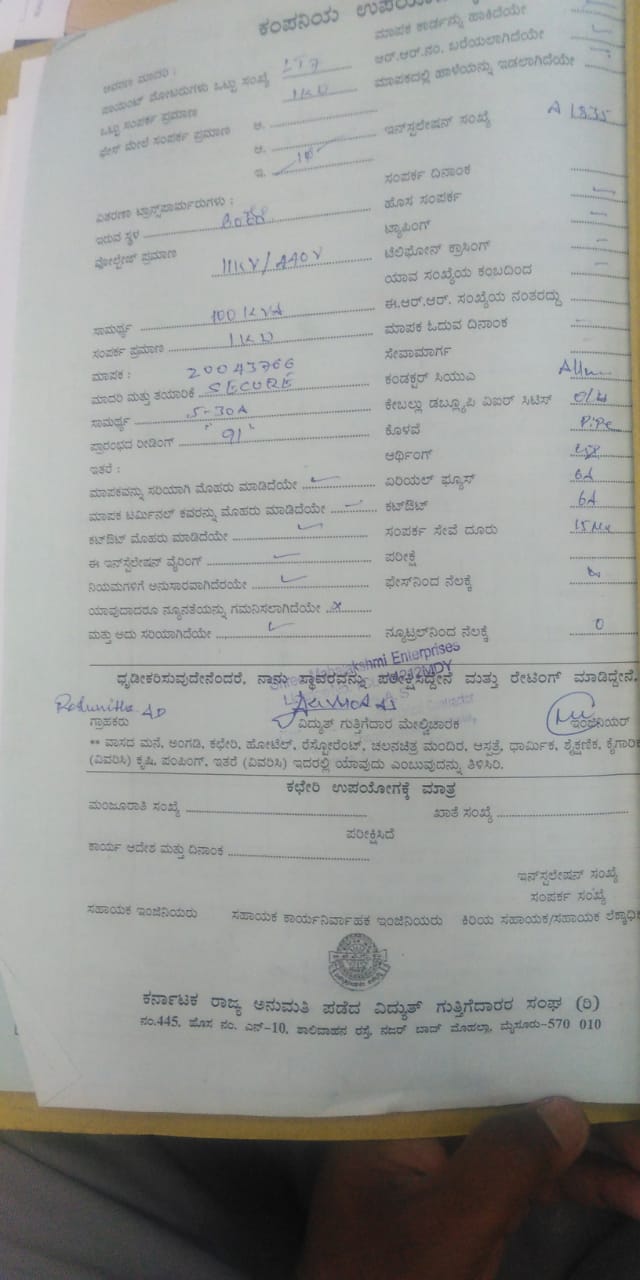 ಕಂಪನಿಯ ಉಪಯೋಗ
ಮಾಪಕ ಕಾರ್ಡನ್ನು ಹಾಕಿದೆಯೇ
ಆರ್.ಆರ್.ನಂ. ಬರೆಯಲಾಗಿದೆಯೇ
ಪಾಯಿಂಟ್ ಮೋಟರುಗಳು ಒಟ್ಟು ಸಂಖ್ಯೆ
ಮಾಪಕದಲ್ಲಿ ಹಾಳೆಯನ್ನು ಇಡಲಾಗಿದೆಯೇ
ಒಟ್ಟು ಸಂಪರ್ಕ ಪ್ರಮಾಣ 1KW
ಫೇಸ್ ಮೇಲೆ ಸಂಪರ್ಕ ಪ್ರಮಾಣ ಆ.
ಇನ್‌ಸ್ಟಲೇಷನ್ ಸಂಖ್ಯೆ A 1835
ಆ.
ಇ.
ಸಂಪರ್ಕ ದಿನಾಂಕ
ವಿತರಣಾ ಟ್ರಾನ್ಸ್‌ಫಾರ್ಮರುಗಳು :
ಹೊಸ ಸಂಪರ್ಕ
ಇರುವ ಸ್ಥಳ
ಟ್ಯಾಪಿಂಗ್
ವೋಲ್ಟೇಜ್ ಪ್ರಮಾಣ 11KV/440V
ಟೆಲಿಫೋನ್ ಕ್ರಾಸಿಂಗ್
ಯಾವ ಸಂಖ್ಯೆಯ ಕಂಬದಿಂದ
ಸಾಮರ್ಥ್ಯ 100 KVA
ಈ.ಆರ್.ಆರ್. ಸಂಖ್ಯೆಯ ನಂತರದ್ದು
ಸಂಪರ್ಕ ಪ್ರಮಾಣ 1KW
ಮಾಪಕ ಓದುವ ದಿನಾಂಕ
ಮಾಪಕ : 20043766
ಸೇವಾಮಾರ್ಗ
ಮಾದರಿ ಮತ್ತು ತಯಾರಿಕೆ SECURE
ಕಂಡಕ್ಟರ್ ಸಿಯುಎ
ಸಾಮರ್ಥ್ಯ 5-30A
ಕೇಬಲ್ಲು ಡಬ್ಲ್ಯೂಪಿ ವಿಐಆರ್ ಸಿಟಿಸ್
ಪ್ರಾರಂಭದ ರೀಡಿಂಗ್ 91
ಕೊಳವೆ Pipe
ಇತರೆ :
ಆರ್ಥಿಂಗ್
ಮಾಪಕವನ್ನು ಸರಿಯಾಗಿ ಮೊಹರು ಮಾಡಿದೆಯೇ
ಏರಿಯಲ್ ಫ್ಯೂಸ್ 6A
ಮಾಪಕ ಟರ್ಮಿನಲ್ ಕವರನ್ನು ಮೊಹರು ಮಾಡಿದೆಯೇ
ಕಟ್‌ಔಟ್ 6A
ಕಟ್‌ಔಟ್ ಮೊಹರು ಮಾಡಿದೆಯೇ
ಸಂಪರ್ಕ ಸೇವೆ ದೂರು
ಈ ಇನ್‌ಸ್ಟೆಲೇಷನ್ ವೈರಿಂಗ್
ಪರೀಕ್ಷೆ
ನಿಯಮಗಳಿಗೆ ಅನುಸಾರವಾಗಿದೆರಯೇ
ಫೇಸ್‌ನಿಂದ ನೆಲಕ್ಕೆ
ಯಾವುದಾದರೂ ನ್ಯೂನತೆಯನ್ನು ಗಮನಿಸಲಾಗಿದೆಯೇ x
ಮತ್ತು ಅದು ಸರಿಯಾಗಿದೆಯೇ
ನ್ಯೂಟ್ರಲ್‌ನಿಂದ ನೆಲಕ್ಕೆ 0
Shree Mahalakshmi Enterprises
ಧೃಡೀಕರಿಸುವುದೇನೆಂದರೆ, ನಾನು ಸ್ಥಾವರವನ್ನು ಪರೀಕ್ಷಿಸಿದ್ದೇನೆ ಮತ್ತು ರೇಟಿಂಗ್ ಮಾಡಿದ್ದೇನೆ.
ಗ್ರಾಹಕರು ವಿದ್ಯುತ್ ಗುತ್ತಿಗೆದಾರ ಮೇಲ್ವಿಚಾರಕ ಇಂಜಿನಿಯರ್
** ವಾಸದ ಮನೆ, ಅಂಗಡಿ, ಕಛೇರಿ, ಹೋಟೆಲ್, ರೆಸ್ಟೋರೆಂಟ್, ಚಲನಚಿತ್ರ ಮಂದಿರ, ಆಸ್ಪತ್ರೆ, ಧಾರ್ಮಿಕ, ಶೈಕ್ಷಣಿಕ, ಕೈಗಾರಿಕ
(ವಿವರಿಸಿ) ಕೃಷಿ, ಪಂಪಿಂಗ್, ಇತರೆ (ವಿವರಿಸಿ) ಇದರಲ್ಲಿ ಯಾವುದು ಎಂಬುವುದನ್ನು ತಿಳಿಸಿರಿ.
ಕಛೇರಿ ಉಪಯೋಗಕ್ಕೆ ಮಾತ್ರ
ಮಂಜೂರಾತಿ ಸಂಖ್ಯೆ ಖಾತೆ ಸಂಖ್ಯೆ
ಪರೀಕ್ಷಿಸಿದೆ
ಕಾರ್ಯ ಆದೇಶ ಮತ್ತು ದಿನಾಂಕ
ಇನ್‌ಸ್ಟಲೇಷನ್ ಸಂಖ್ಯೆ
ಸಂಪರ್ಕ ಸಂಖ್ಯೆ
ಸಹಾಯಕ ಇಂಜಿನಿಯರು ಸಹಾಯಕ ಕಾರ್ಯನಿರ್ವಾಹಕ ಇಂಜಿನಿಯರು ಕಿರಿಯ ಸಹಾಯಕ/ಸಹಾಯಕ ಲೆಕ್ಕಾಧಿಕ
ಕರ್ನಾಟಕ ರಾಜ್ಯ ಅನುಮತಿ ಪಡೆದ ವಿದ್ಯುತ್ ಗುತ್ತಿಗೆದಾರರ ಸಂಘ (ರಿ)
ನಂ.445, ಹೊಸ ನಂ. ಎನ್-10, ಶಾಲಿವಾಹನ ರಸ್ತೆ, ನಜರ್ ಬಾದ್ ಮೊಹಲ್ಲಾ, ಮೈಸೂರು-570 010